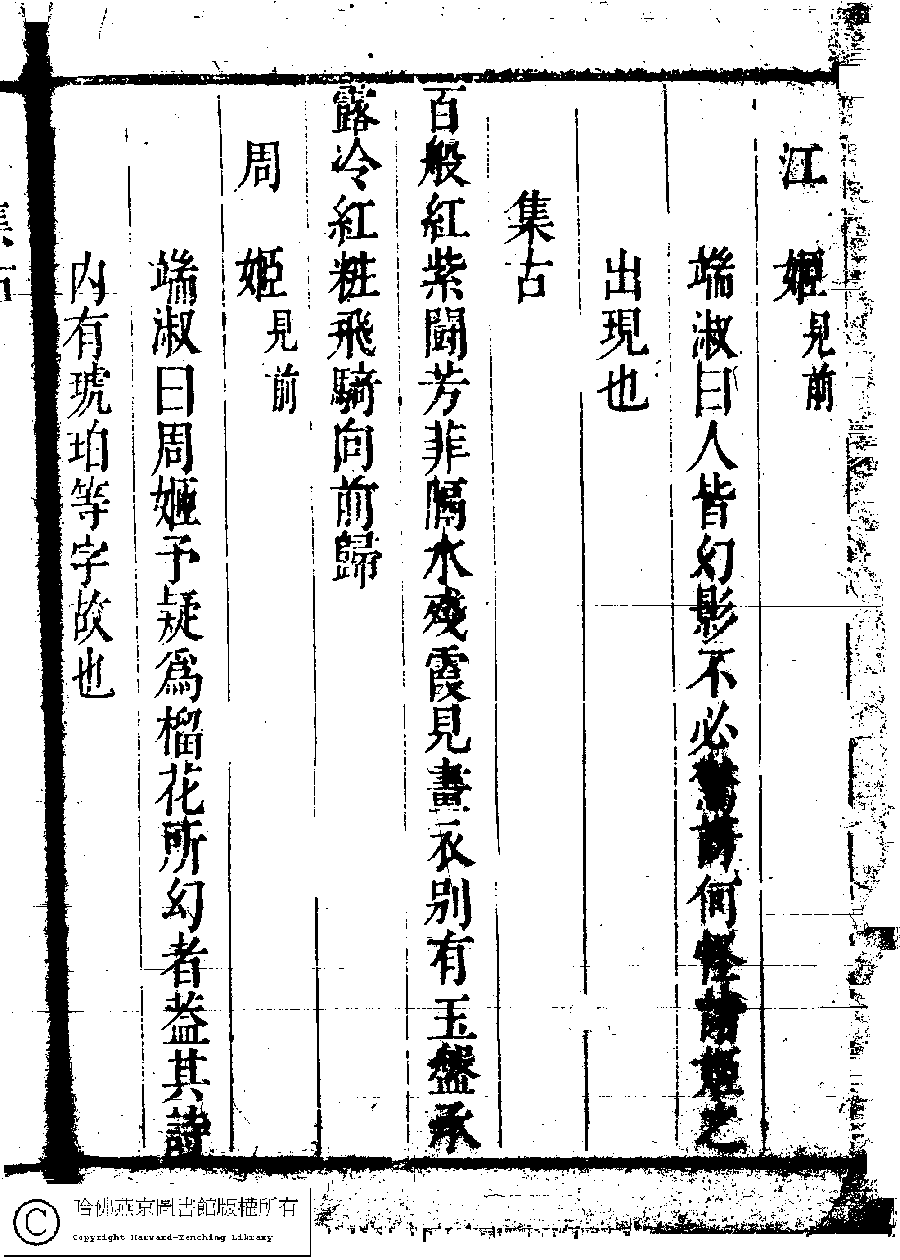 江姬見前
端淑曰人皆幻影不必驚訝何怪諸姬之
出現也
集古
百般紅紫闘芳菲隔水殘霞見畫衣别有玉盤承
露冷紅粧飛騎向前歸
周姬見前
端淑曰周姬予疑爲榴花所幻者葢其詩
内有琥珀等字故也
哈佛燕京圖書館版權所有
Copyright Harvard-Yenching Library